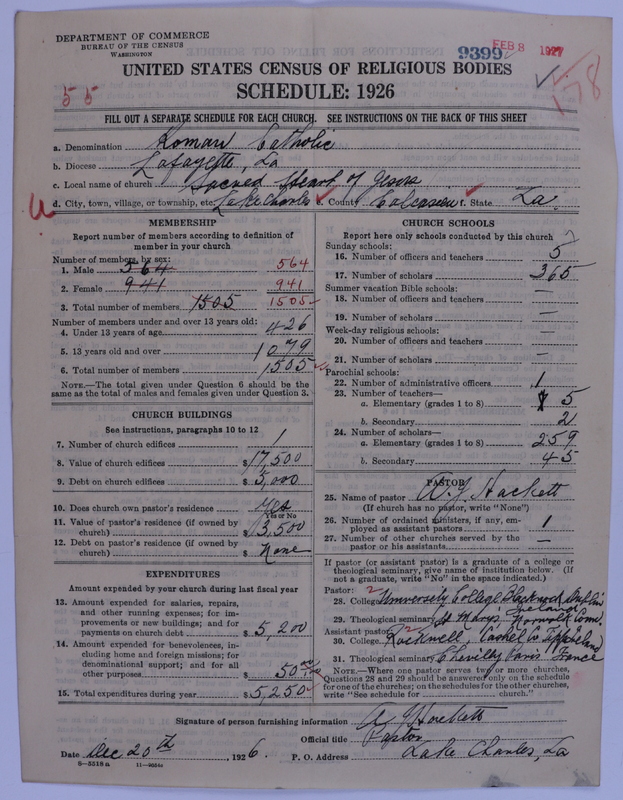 DEPARTMENT OF COMMERCE
BUREAU OF THE CENSUS
WASHINGTON
9399
FEB 8 1927
UNITED STATES CENSUS OF RELIGIOUS BODIES
SCHEDULE: 1926
55
178
FILL OUT A SEPARATE SCHEDULE FOR EACH CHURCH. SEE INSTRUCTIONS ON THE BACK OF THIS SHEET
a. Denomination Roman Catholic
b. Diocese Lafayette, La
c. Local name of church Sacred Heart of Jesus
d. City, town, village, or township, etc. Lake Charles e. County Calcasieu f. State La.
MEMBERSHIP
Report number of members according to definition of
member in your church
Number of members by sex:
1. Male 564 564
2. Female 941 941
3. Total number of members 1505 1505
Number of members under and over 13 years old:
4. Under 13 years of age 426
5. 13 years old and over 1079
6. Total number of members 1505
NOTE.—The total given under Question 6 should be
the same as the total of males and females given under Question 3.
CHURCH BUILDINGS
See instructions, paragraphs 10 to 12
7. Number of church edifices 1
8. Value of church edifices $17,500
9. Debt on church edifices $5,000
10. Does church own pastor's residence Yes
Yes or No
11. Value of pastor's residence (if owned by
church) $3,500
12. Debt on pastor's residence (if owned by
church) $None
EXPENDITURES
Amount expended by your church during last fiscal year
13. Amount expended for salaries, repairs,
and other running expenses; for im-
provements or new buildings; and for
payments on church debt $5,200
14. Amount expended for benevolences, in-
cluding home and foreign missions; for
denominational support; and for all
other purposes $50
15. Total expenditures during year $5,250
CHURCH SCHOOLS
Report here only schools conducted by this church
Sunday schools:
16. Number of officers and teachers 5
17. Number of scholars 365
Summer vacation Bible schools:
18. Number of officers and teachers —
19. Number of scholars —
Week-day religious schools:
20. Number of officers and teachers —
21. Number of scholars —
Parochial schools:
22. Number of administrative officers 1
23. Number of teachers—
a. Elementary (grades 1 to 8) 5
b. Secondary 2
24. Number of scholars—
a. Elementary (grades 1 to 8) 259
b. Secondary 45
PASTOR
25. Name of pastor A. J. Hackett
(If church has no pastor, write "None")
26. Number of ordained ministers, if any, em-
ployed as assistant pastors 1
27. Number of other churches served by the
pastor or his assistants —
If pastor (or assistant pastor) is a graduate of a college or
theological seminary, give name of institution below. (If
not a graduate, write "No" in the space indicated.)
Pastor: 2
28. College University College Blackrock Dublin
Ireland
29. Theological seminary St Mary's Norwalk Conn.
Assistant pastor: 2
30. College Rockwell, Cashel Co Tipp Ireland
31. Theological seminary Chevilly Paris France
NOTE.—Where one pastor serves two or more churches,
Questions 28 and 29 should be answered only on the schedule
for one of the churches; on the schedules for the other churches,
write "See schedule for church."
Signature of person furnishing information A J Hackett
Official title Pastor
Date Dec 20th, 1926. P. O. Address Lake Charles, La
8—5518a 11—9054